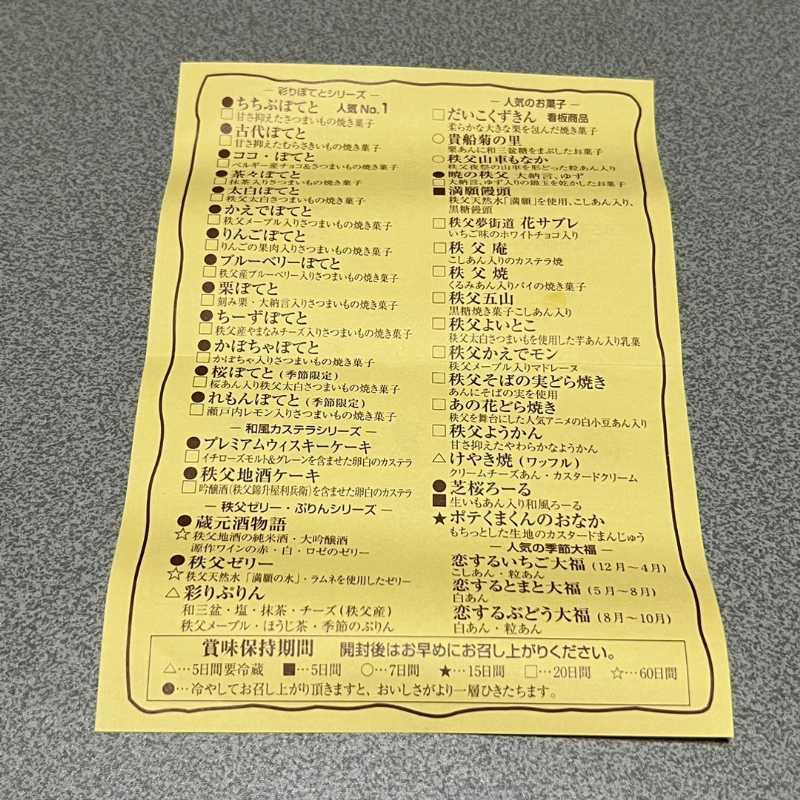 ― 彩りぽてとシリーズ ―
●ちちぶぽてと 人気No.1
□甘さ抑えたさつまいもの焼き菓子
●古代ぽてと
□甘さ抑えたむらさきいもの焼き菓子
●ココ・ぽてと
□ベルギー産チョコ&さつまいもの焼き菓子
●茶々ぽてと
□抹茶入りさつまいもの焼き菓子
●太白ぽてと
□秩父太白さつまいもの焼き菓子
●かえでぽてと
□秩父メープル入りさつまいもの焼き菓子
●りんごぽてと
□りんごの果肉入りさつまいもの焼き菓子
●ブルーベリーぽてと
□秩父産ブルーベリー入りさつまいもの焼き菓子
●栗ぽてと
□刻み栗・大納言入りさつまいもの焼き菓子
●ちーずぽてと
□秩父産やまなみチーズ入りさつまいもの焼き菓子
●かぼちゃぽてと
□かぼちゃ入りさつまいもの焼き菓子
●桜ぽてと(季節限定)
□桜あん入り秩父太白さつまいもの焼き菓子
●れもんぽてと(季節限定)
□瀬戸内レモン入りさつまいもの焼き菓子
― 和風カステラシリーズ ―
●プレミアムウィスキーケーキ
□イチローズモルト&グレーンを含ませた卵白のカステラ
●秩父地酒ケーキ
□吟醸酒(秩父錦升屋利兵衛)を含ませた卵白のカステラ
― 秩父ゼリー・ぷりんシリーズ ―
●蔵元酒物語
☆秩父地酒の純米酒・大吟醸酒
源作ワインの赤・白・ロゼのゼリー
●秩父ゼリー
☆秩父天然水「満願の水」・ラムネを使用したゼリー
△彩りぷりん
和三盆・塩・抹茶・チーズ(秩父産)
秩父メープル・ほうじ茶・季節のぷりん
― 人気のお菓子 ―
□だいこくずきん 看板商品
柔らかな大きな栗を包んだ焼き菓子
○貴船菊の里
栗あんに和三盆糖をまぶしたお菓子
○秩父山車もなか
秩父夜祭の山車を形どった粒あん入り
●暁の秩父 大納言、ゆず
□大納言、ゆず入りの錦玉を乾かしたお菓子
■満願饅頭
秩父天然水「満願」を使用、こしあん入り、
黒糖饅頭
□秩父夢街道 花サブレ
いちご味のホワイトチョコ入り
□秩父庵
こしあん入りのカステラ焼
□秩父焼
くるみあん入りパイの焼き菓子
□秩父五山
黒糖焼き菓子こしあん入り
□秩父よいとこ
秩父太白さつまいもを使用した芋あん入り乳菓
□秩父かえでモン
秩父メープル入りマドレーヌ
□秩父そばの実どら焼き
あんにそばの実を使用
□あの花どら焼き
秩父を舞台にした人気アニメの白小豆あん入り
□秩父ようかん
甘さ抑えたやわらかなようかん
△けやき焼(ワッフル)
クリームチーズあん・カスタードクリーム
●芝桜ろーる
■生いもあん入り和風ろーる
★ポテくまくんのおなか
もちっとした生地のカスタードまんじゅう
― 人気の季節大福 ―
恋するいちご大福(12月~4月)
こしあん・粒あん
恋するとまと大福(5月~8月)
白あん
恋するぶどう大福(8月~10月)
白あん・粒あん
賞味保持期間 開封後はお早めにお召し上がりください。
△…5日間要冷蔵 ■…5日間 ○…7日間 ★…15日間 □…20日間 ☆…60日間
●…冷やしてお召し上がり頂きますと、おいしさがより一層ひきたちます。